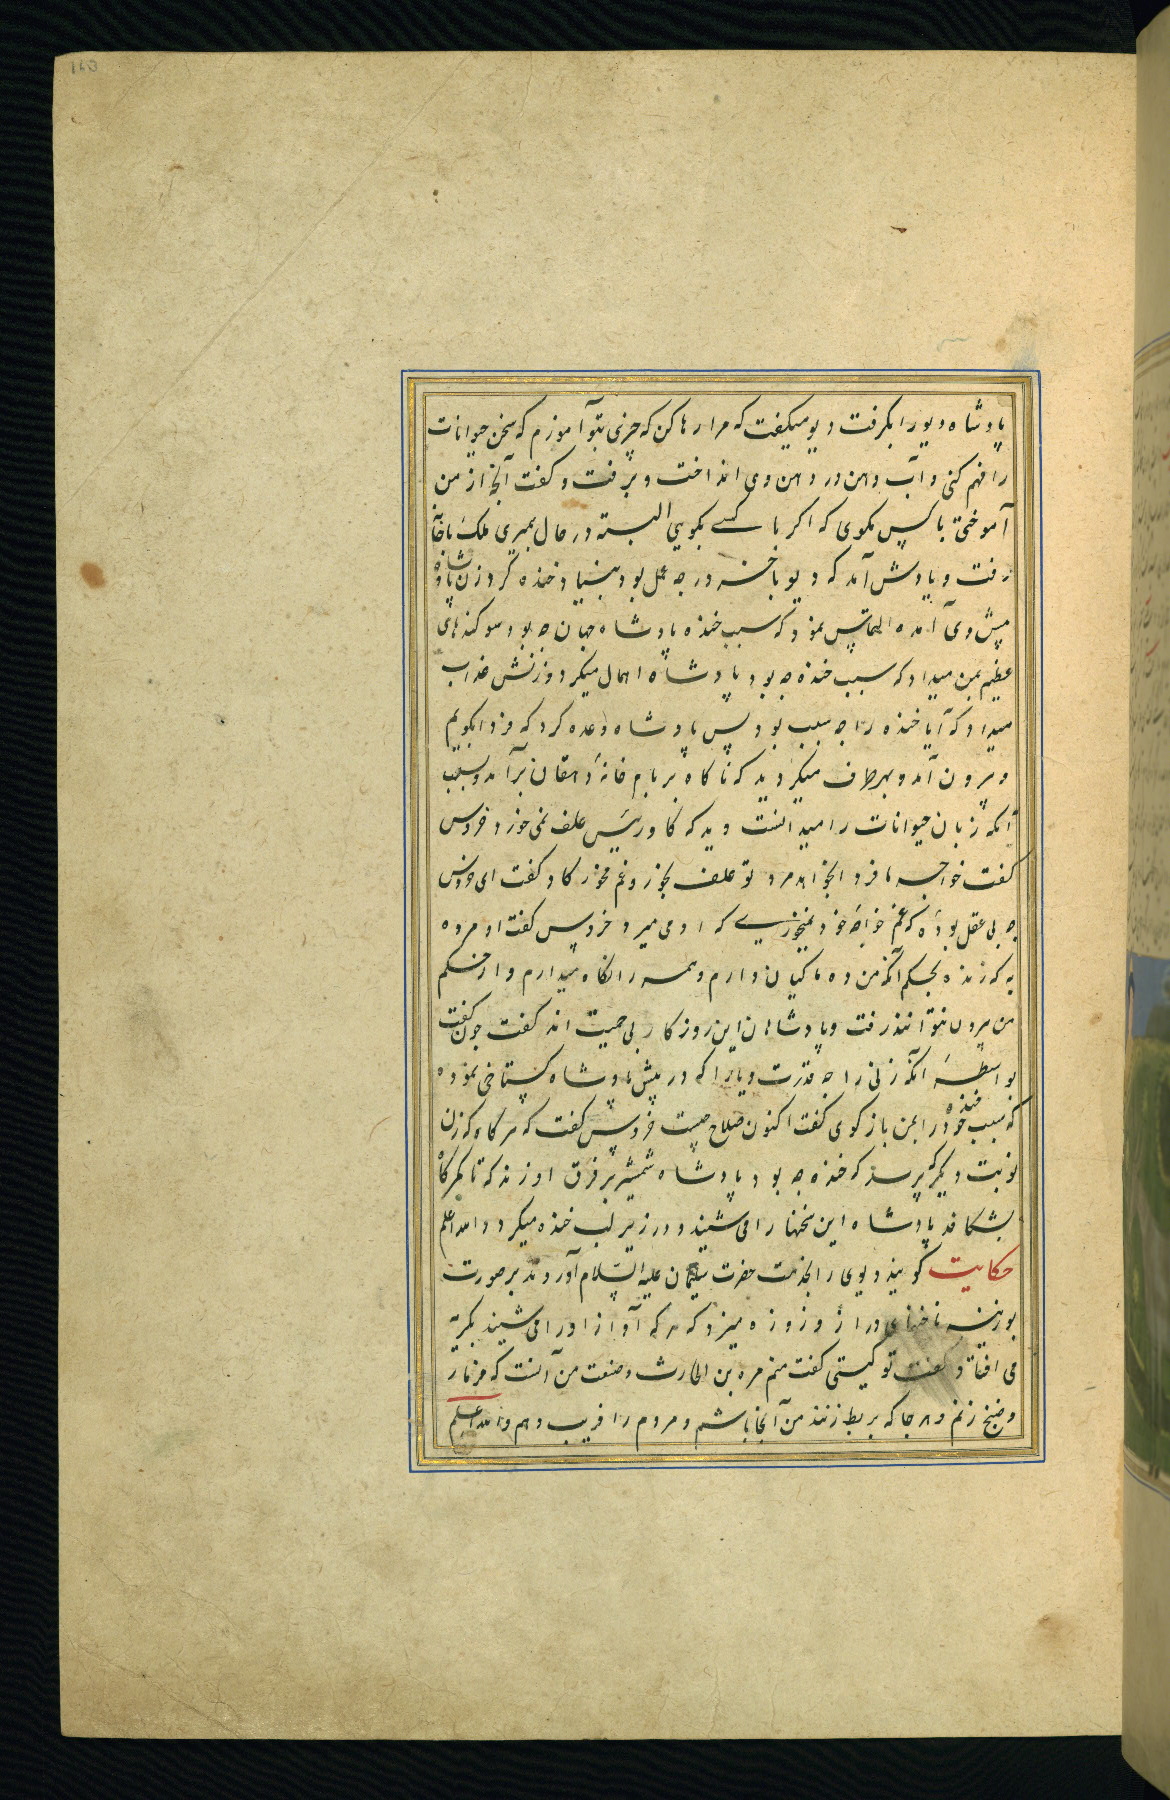 پادشاه دیو را بکرفت دیو میکفت که مرا رها کن که چیزی بتو آموزم که سخن حیوانات
را فهم کنی و آب دهن در دهن وی انداخت و برفت و کفت آنچه از من
آموختی با کس مکوی که اکر با کسے بکویی البته در حال بمیری ملک باخانه
رفت و یادش آمد که دیو با در چه عمل بود بنیاد خنده کرد زن پادشاه
پیش وی آمده التماس نمود که سبب خنده پادشاه جهان چه بود سوکندهای
عظیم بمن میداد که سبب خنده چه بود پادشاه اهمال میکرد و زنش عذاب
میداد که آیا خنده را چه سبب بود پس پادشاه وعده کرد که فردا بکویم
و بیرون آمد و بهر طرف میکردید که ناکاه بر بام خانهٔ دهقان برآمد و بسبب
آنکه زبان حیوانات را میدانست دید که کاو ریس علف نمی خورد خروس
کفت خواجه ما فردا بخواهد مرد تو علف بخور و غم مخور کاو کفت ای خروس
چه بی عقل بودهٔ که غم خواجهٔ خود نمیخوری که او می میرد خروس کفت او مرده
به که زنده بحکم آنکه من ده ماکیان دارم و همه را نکاه میدارم و از حکم
من بیرون نتوانند رفت و پادشاهان این روزکار بی حمیت اند کفت چون کفت
بواسطهٔ آنکه زنی را چه قدرت و یارا که در پیش پادشاه کستاخی نموده
که سبب خنده خود را بمن باز کوی کفت اکنون صلاح چیست خروس کفت که هرکاه که زن
نوبت دیکر که پرسد که خنده چه بود پادشاه شمشیر بر فرق او زند که تا کمرکاه
بشکافد پادشاه این سخنها را می شنید و در زیر لب خنده میکرد والله اعلم
حکایت کویند دیوی را بخدمت حضرت سلیمان علیه السلام آوردند بر صورت
بوزینه ناخنهای دراز و زوزه میزد که هر که آواز او را می شنید بکریه
می افتاد و کفت تو کیستی کفت منم مره بن الحارث و صنعت من آنست که مزمار
و صنج زنم و هر جا که بربط زنند من آنجا باشم و مردم را فریب دهم والله اعلم